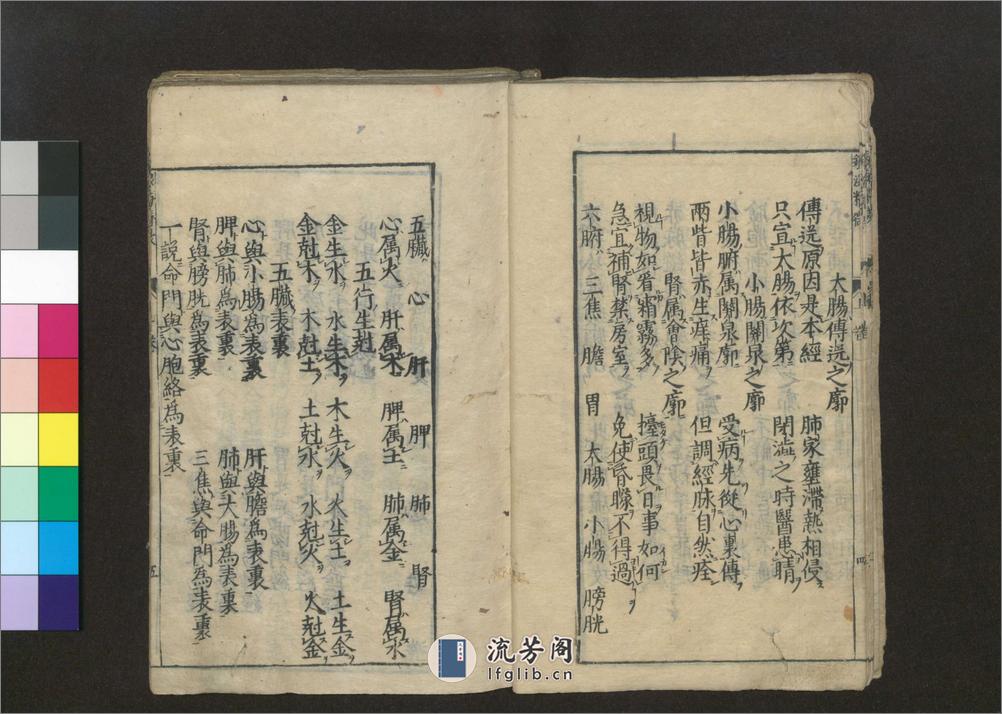 大腸傳送之廓
傳送原因是本經 肺家壅滯熱相侵
只宜大腸依次第 閉澁之時醫患睛
小腸關泉之廓
小腸腑属關泉廓 受病先從心裏傳
兩眥皆赤生痒痛 但調經脉自然痊
腎属會陰之廓
視物如看霜霧多 擡頭畏日事如何
急宜補腎禁房室 免使昏矇不得過
六腑 三焦 膽 胃 大腸 小腸 膀胱
四
五臟 心 肝 脾 肺 腎
心属火 肝属木 脾属土 肺属金 腎属水
五行生尅
金生水 水生木 木生火 火生土 土生金
金尅木 木尅土 土尅水 水尅火 火尅金
五臟表裏
心與小腸為表裏 肝與膽為表裏
脾與肺為表裏 肺與大腸為表裏
腎與膀胱為表裏 三焦與命門為表裏
一説命門與心胞絡為表裏
五
流芳阁
lfglib.cn